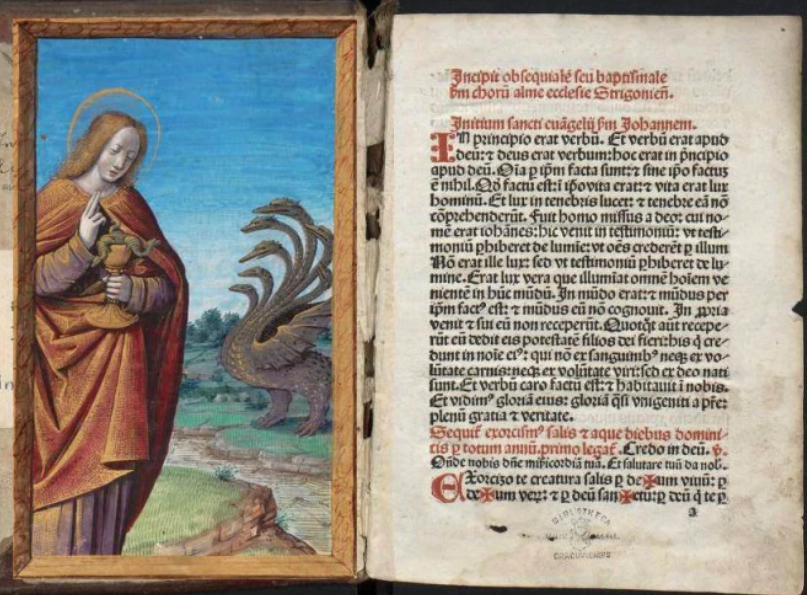 Incipit obsequiale seu baptismale
sm chorū alme ecclesie Strigonieñ.
Initium sancti euāgelij sm Johannem.
IN principio erat verbū. Et verbū erat apud
deū: ⁊ deus erat verbum: hoc erat in pncipio
apud deū. Oīa p ipm facta sunt: ⁊ sine ipo factū
ē nihil. Qd factū est: ī ipo vita erat: ⁊ vita erat lux
hominū. Et lux in tenebris lucet: ⁊ tenebre eā nō
cōprehenderūt. Fuit homo missus a deo: cui no⸗
mē erat iohānes: hic venit in testimoniū: vt testi⸗
moniū phiberet de lumīe: vt oēs crederēt p illum
Nō erat ille lux: sed vt testimoniū phiberet de lu⸗
mine. Erat lux vera que illumīat omnē hoīem ve
nientē in hūc mūdū. In mūdo erat: ⁊ mūdus per
ipm factꝰ est: ⁊ mūdus eū nō cognouit. In ppria
venit ⁊ sui eū non receperūt. Quotqt aūt recepe⸗
rūt eū dedit eis potestatē filios dei fieri: his q cre⸗
dunt in noīe eiꝰ: qui nō ex sanguinibꝰ neqꝫ ex vo⸗
lūtate carnis: neqꝫ ex volūtate viri: sed ex deo nati
sunt. Et verbū caro factū est: ⁊ habitauit ī nobis.
Et vidimꝰ gloriā eius: gloriā qsi vnigeniti a pre:
plenū gratia ⁊ veritate.
Sequit exorcismꝰ salis ⁊ aque diebus domini⸗
cis p totum annū. primo legat. Credo in deū. v.
Ostende nobis dñe misericordiā tuā. Et salutare tuū da nob.
EXorcizo te creatura salis p de✠um viuū: p
de✠um verū: ⁊ p deū san✠ctū: p deū q te p
a
BIBLIOTHECA
CRACOVIENSIS